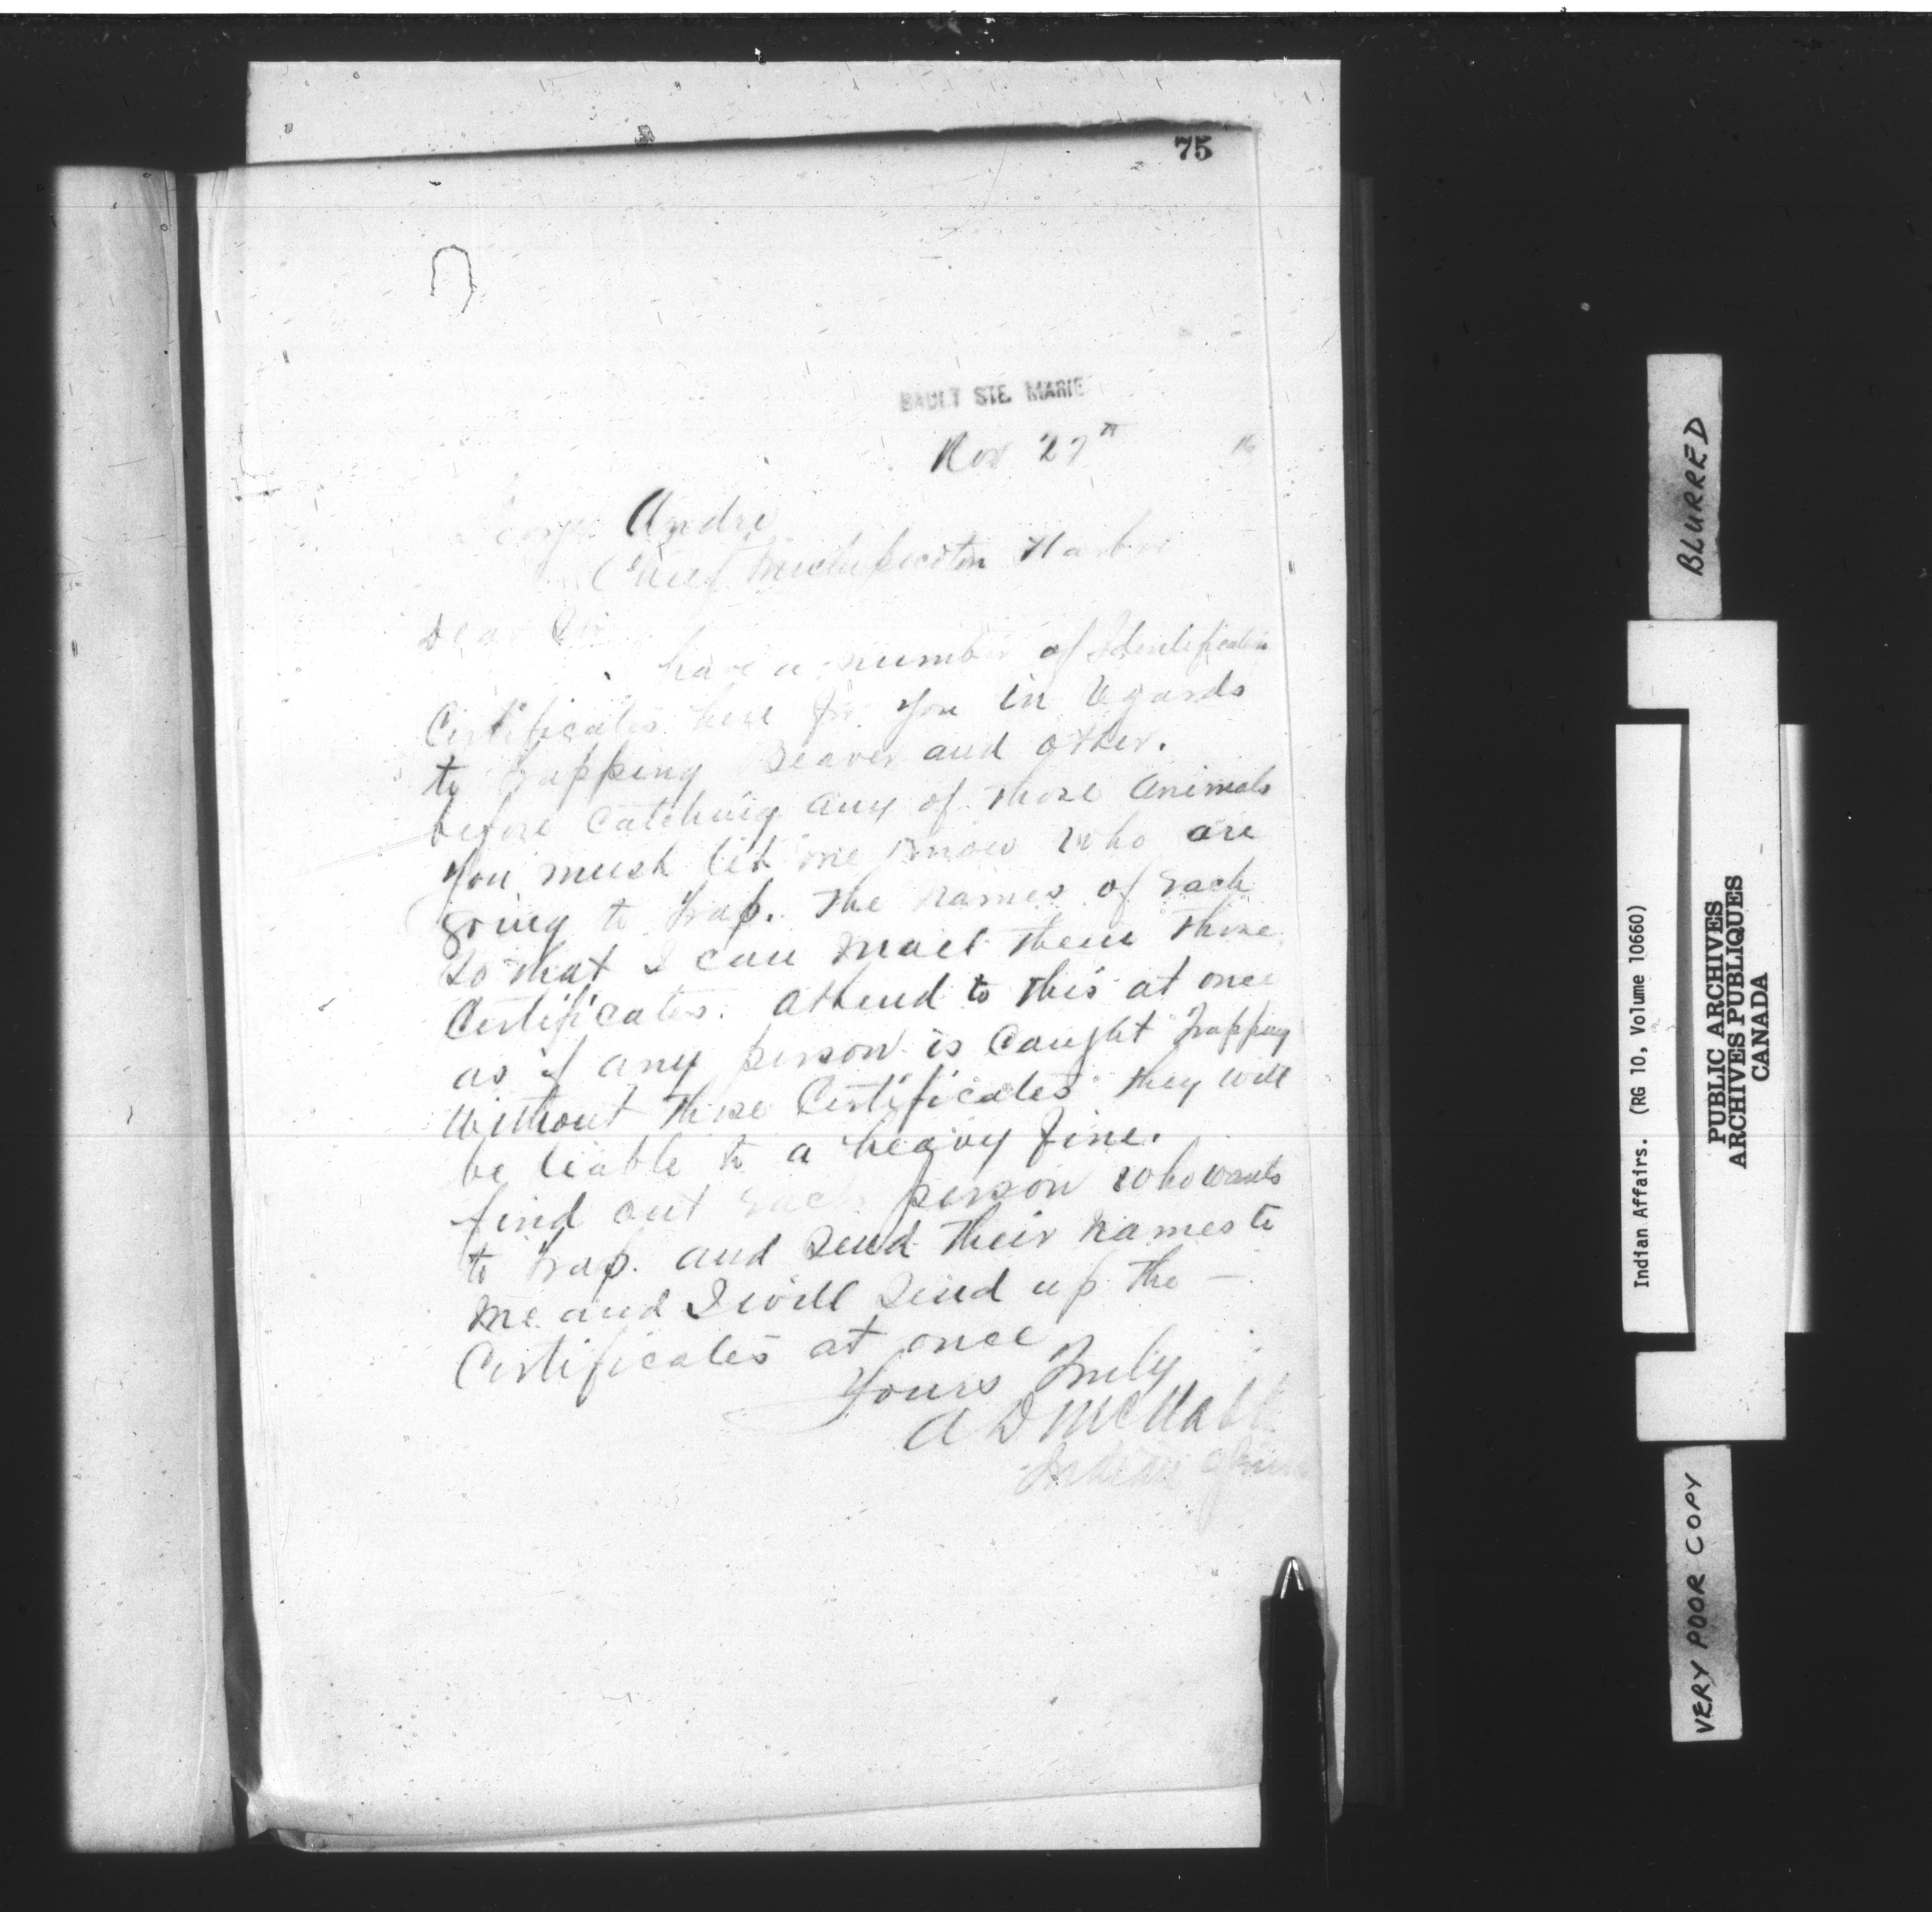 75
SAULT STE. MARIE
Nov 27th 16
George Andre
Chief Michipicoten Harbor
Dear Sir
have a number of Identification
Certificates here for you in regards
to trapping Beaver and otter.
before catching any of those animals
you must let me know who are
going to trap. The names of each
so that I can mail them those
Certificates. attend to this at once
as if any person is caught trapping
without these Certificates they will
be liable to a heavy fine.
find out each person who wants
to trap. and send their names to
me and I will send up the —
Certificates at once
Yours Truly
A D McNabb
Indian Agent
BLURRED
Indian Affairs. (RG 10, Volume 10660)
PUBLIC ARCHIVES
ARCHIVES PUBLIQUES
CANADA
VERY POOR COPY